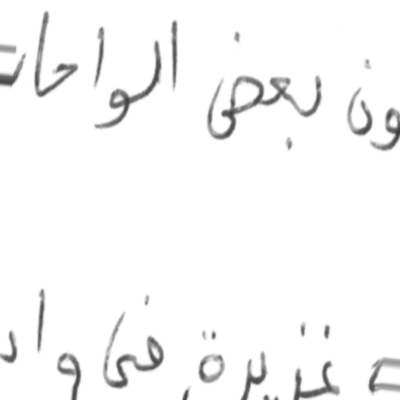 بعض الواحات
غزيرة في واد